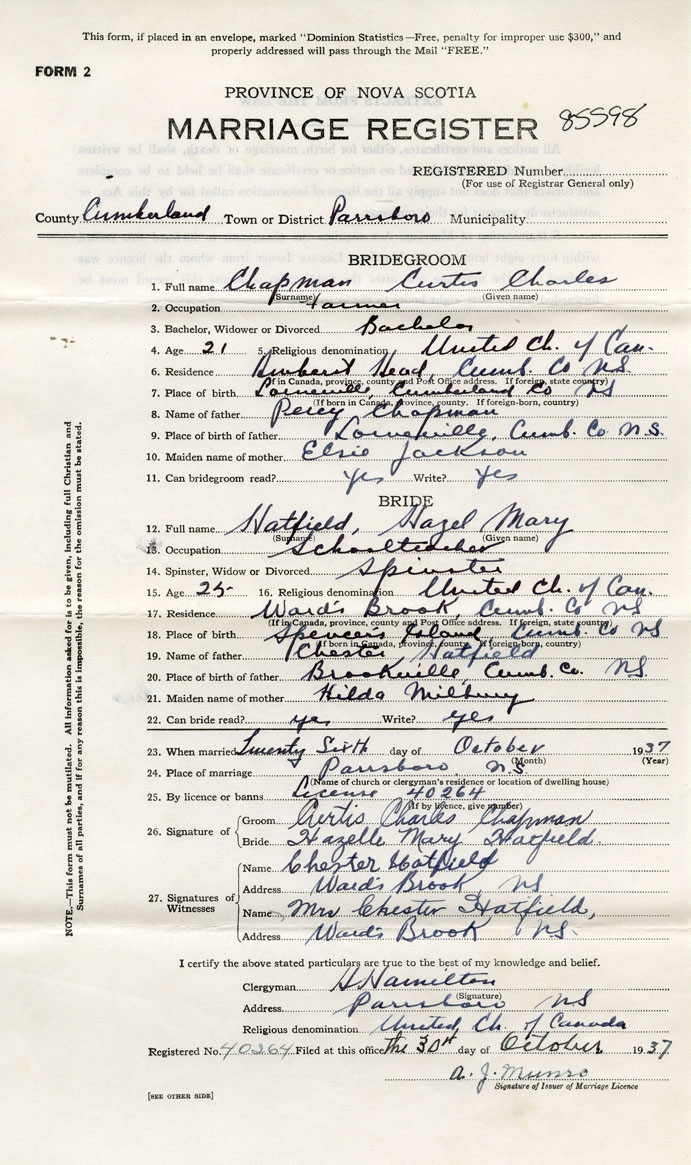 This form, if placed in an envelope, marked "Dominion Statistics—Free, penalty for improper use $300," and
properly addressed will pass through the Mail "FREE."
FORM 2
PROVINCE OF NOVA SCOTIA
MARRIAGE REGISTER 85598
REGISTERED Number
(For use of Registrar General only)
County Cumberland Town or District Parrsboro Municipality
BRIDEGROOM
1. Full name Chapman Curtis Charles
(Surname) (Given name)
2. Occupation Farmer
3. Bachelor, Widower or Divorced Bachelor
4. Age 21 5. Religious denomination United Ch. of Can.
6. Residence Amherst Head, Cumb. Co NS
(If in Canada, province, county and Post Office address. If foreign, state country)
7. Place of birth Lorneville, Cumberland Co NS
(If born in Canada, province, county. If foreign-born, country)
8. Name of father Percy Chapman
9. Place of birth of father Lorneville, Cumb. Co N.S.
10. Maiden name of mother Elsie Jackson
11. Can bridegroom read? Yes Write? Yes
BRIDE
12. Full name Hatfield, Hazel Mary
(Surname) (Given name)
13. Occupation Schoolteacher
14. Spinster, Widow or Divorced Spinster
15. Age 25 16. Religious denomination United Ch. of Can.
17. Residence Ward's Brook, Cumb. Co NS
(If in Canada, province, county and Post Office address. If foreign, state country)
18. Place of birth Spencer's Island, Cumb. Co NS
(If born in Canada, province, county. If foreign-born, country)
19. Name of father Chester Hatfield
20. Place of birth of father Brookville, Cumb. Co. NS.
21. Maiden name of mother Hilda Milbury
22. Can bride read? yes Write? yes
23. When married Twenty Sixth day of October 1937
(Month) (Year)
24. Place of marriage Parrsboro N.S
(Name of church or clergyman's residence or location of dwelling house)
25. By licence or banns License 40264
(If by licence, give number)
26. Signature of
Groom Curtis Charles Chapman
Bride Hazelle Mary Hatfield
27. Signatures of Witnesses
Name Chester Hatfield
Address Ward's Brook NS
Name Mrs Chester Hatfield,
Address Ward's Brook N.S.
I certify the above stated particulars are true to the best of my knowledge and belief.
Clergyman Hamilton
(Signature)
Address Parrsboro NS
Religious denomination United Ch. of Canada
Registered No. 40264 Filed at this office the 30th day of October 1937
A. J. Munro
Signature of Issuer of Marriage Licence
[SEE OTHER SIDE]
NOTE.—This form must not be mutilated. All information asked for is to be given, including full Christian and
Surnames of all parties, and if for any reason this is impossible, the reason for the omission must be stated.